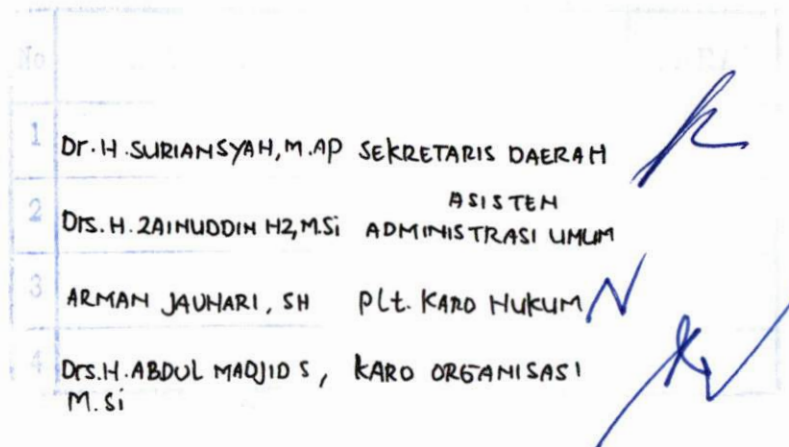 No
1 Dr. H. SURIANSYAH, M.AP SEKRETARIS DAERAH
2 Drs. H. ZAINUDDIN HZ, M.Si ASISTEN ADMINISTRASI UMUM
3 ARMAN JAUHARI, SH Plt. KARO HUKUM
4 Drs. H. ABDUL MADJID S, KARO ORGANISASI
M. Si